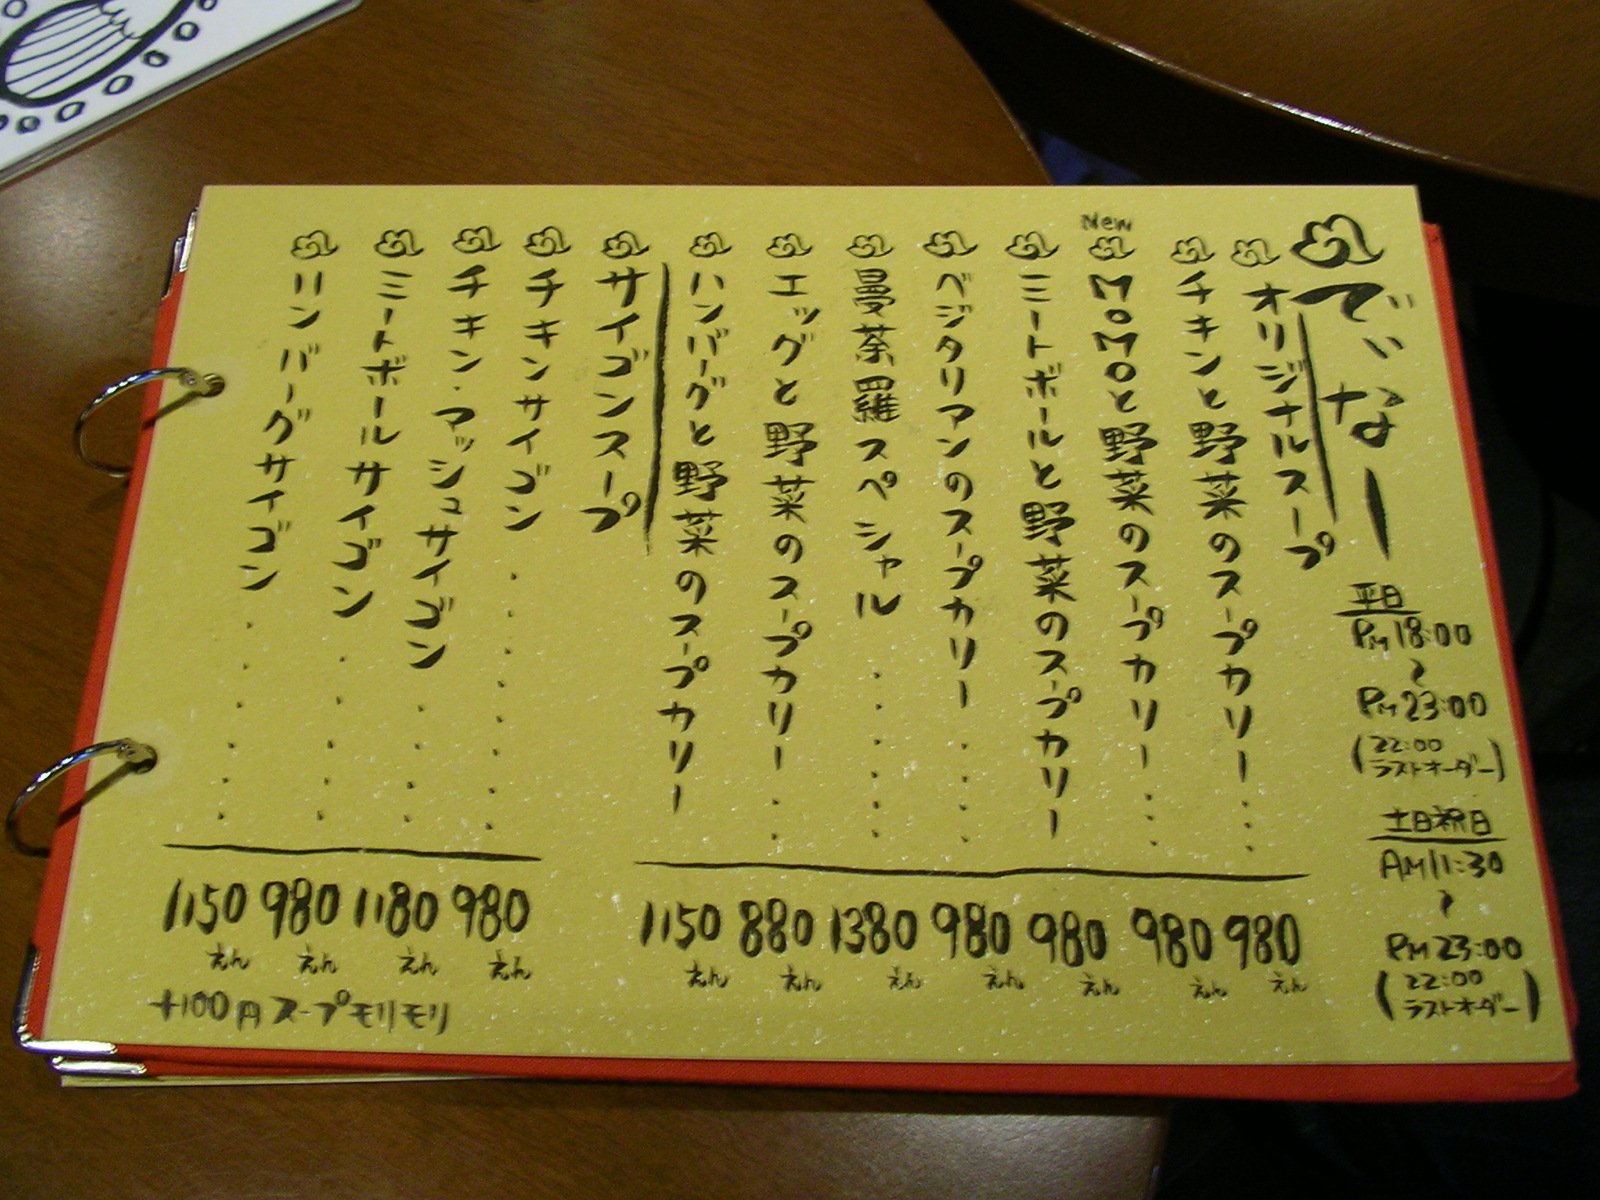 でぃなー
平日
PM18:00
〜
PM23:00
(22:00
ラストオーダー)
土日祝日
AM11:30
〜
PM23:00
(22:00
ラストオーダー)
オリジナルスープ
チキンと野菜のスープカリー・・ 980えん
New
MOMOと野菜のスープカリー・・ 980えん
ミートボールと野菜のスープカリー 980えん
ベジタリアンのスープカリー・・・ 980えん
曼荼羅スペシャル・・・・・ 1380えん
エッグと野菜のスープカリー・・ 880えん
ハンバーグと野菜のスープカリー 1150えん
サイゴンスープ
チキンサイゴン・・・・・ 980えん
チキン・マッシュサイゴン・・・・ 1180えん
ミートボールサイゴン・・・・・ 980えん
ハンバーグサイゴン・・・・・ 1150えん
+100円スープモリモリ